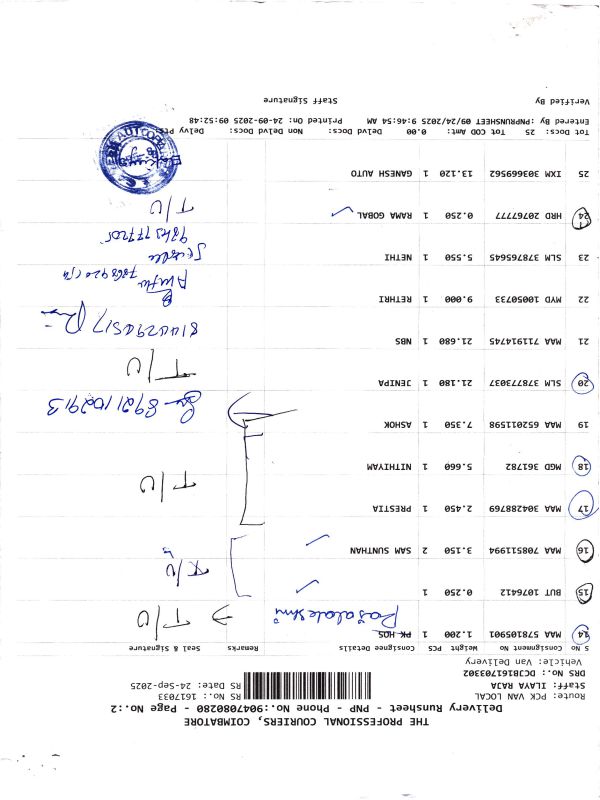 THE PROFESSIONAL COURIERS, COIMBATORE
Delivery Runsheet - PNP - Phone No.:9047080280 - Page No.:2
Route: PCK VAN LOCAL
Staff: ILAYA RAJA
DRS No.: DCIB1617033O2
Vehicle: Van Delivery
RS No.: 1617033
RS Date: 24-Sep-2025
S No Consignment No Weight PCS Consignee Details Remarks Seal & Signature
14 MAA 578105901 1.200 1 PK HOS T/U
15 BUT 1076412 0.250 1
16 MAA 708511994 3.150 2 SAM SUNTHAN T/U
17 MAA 304288769 2.450 1 PRESTIA
18 MGD 361782 5.660 1 NITHIYAM T/U
19 MAA 652011598 7.350 1 ASHOK 8921102913
20 SLM 378773037 21.180 1 JENIPA T/U
21 MAA 711914745 21.680 1 NBS
22 MYD 10050733 9.000 1 RETRI
23 SLM 378765645 5.550 1 NETHI
24 HRD 20767777 0.250 1 RAMA GOBAL T/U
25 IXM 303669562 13.120 1 GANESH AUTO
Tot Docs: 25 Tot COD Amt: 0.00 Delvd Docs: Non Delvd Docs: Delvy Pts:
Entered By: PNPRUNSHEET 09/24/2025 9:46:54 AM Printed On: 24-09-2025 09:52:48
Verified By Staff Signature